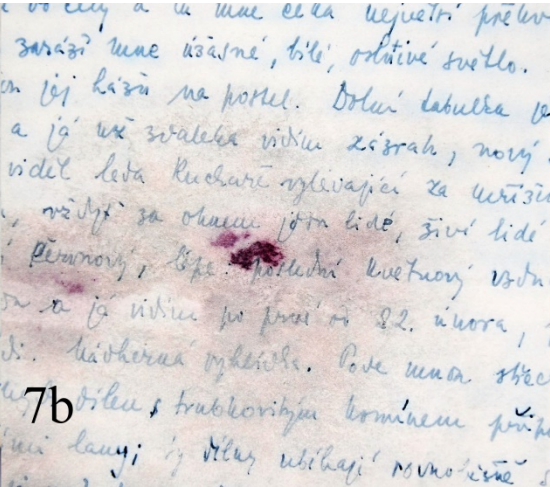 do cely a tu mne čeká největší překv
zarází mne úžasné, bílé, oslnivé světlo.
jej házú na postel. Dolní tabulka je
a já už zdaleka vidím zázrak, nový
viděl leda kuchaře vylévající za mříží
, vždyť za oknem jsou lidé, živí lidé
červnový, lépe poslední květnový vzdu
a já vidím po prvé od 22. února,
Nádherná vyhlídka. Pode mnou střec
dílen, s trubkovitým komínem připe
lany; ty dílny ubíhají rovnoběžně s
7b